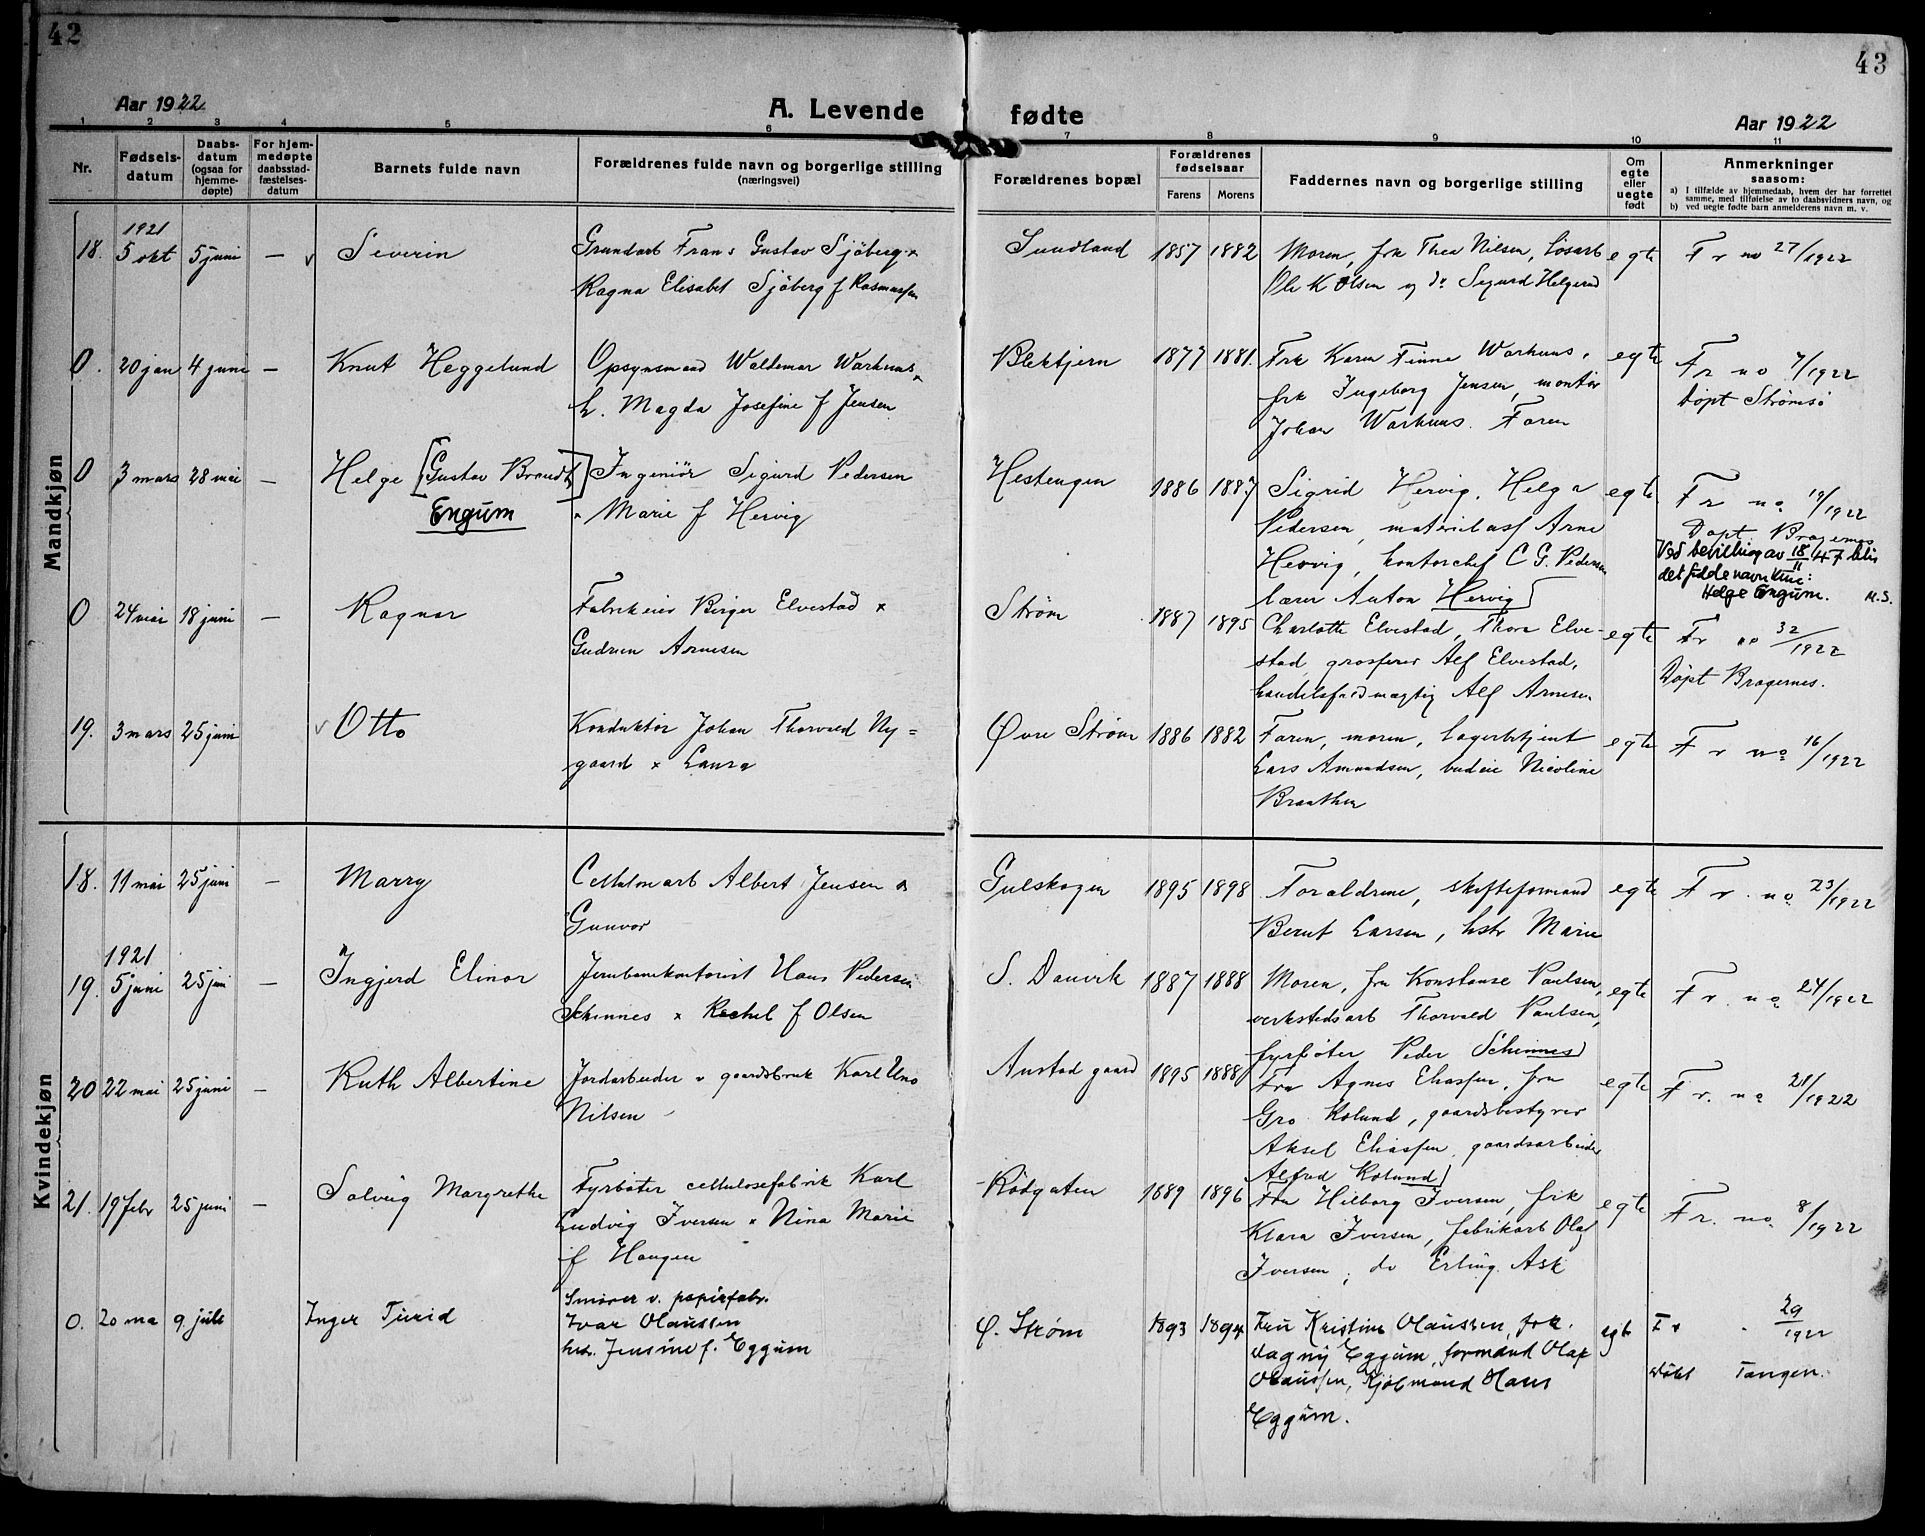 42
43
Aar 1922
A. Levende
fødte
Aar 1922
1 2 3 4 5 6 7 8 9 10 11
Nr.
Fødsels-
datum
Daabs-
datum
(ogsaa for
hjemme-
døpte)
For hjem-
medøpte
daabsstad-
fæstelses-
datum
Barnets fulde navn
Forældrenes fulde navn og borgerlige stilling
(næringsvei)
Forældrenes bopæl
Forældrenes
fødselsaar
Farens Morens
Faddernes navn og borgerlige stilling
Om
egte
eller
uegte
født
Anmerkninger
saasom:
a) I tilfælde av hjemmedaab, hvem der har forrettet
samme, med tilføielse av to daabsvidners navn, og
b) ved uegte fødte barn anmelderens navn m. v.
Mandkjøn
1921
18. 5 okt 5 juni — Severin
Grundarb Frans Gustav Sjöberg x
Ragna Elisabet Sjöberg f Rasmussen
Sundland 1857 1882
Moren, frk Thea Nilsen, løsarb
Ole K Olsen og do Sigurd Helgerud
egte
Fr no 27/1922
0. 20 jan 4 juni — Knut Heggelund
Opsynsmand Waldemar Warhuus
h. Magda Josefine f Jensen
Blektjern 1877 1881.
Frk Karen Finne Warhuus,
frk Ingeborg Jensen, montör
Johan Warhuus. Faren
egte
Fr no 7/1922
Döpt Strømsö
0 3 mars 28 mai — Helge [Gustav Brandt]
Engum
Ingeniör Sigurd Pedersen
x Marie f Hervig
Hestengen 1886 1887
Sigrid Hervig, Helga
Pedersen, materialasf Arne
Hervig, kontorchef C G. Pedersen
lærer Anton Hervig
egte
Fr no 19/1922
Döpt. Bragernes
Ved bevilling av 18/11 47 blir
det fulde navn kun:
Helge Engum. M.S.
0 24 mai 18 juni — Ragnar
Fabrikeier Birger Elvestad x
Gudrun Arnesen
Strøm 1887 1895
Charlotte Elvestad, Thora Elve-
stad grosserer Alf Elvestad,
handelsfuldmægtig Alf Arnesen
egte
Fr no 32/1922
Döpt Bragernes.
19. 3 mars 25 juni Otto
Konduktör Johan Thorvald Ny=
gaard x Laura
Øvre Strøm 1886 1882
Faren, moren, lagerbetjent
Lars Amundsen, budeie Nicoline
Braathen
egte
Fr no 16/1922
Kvindekjøn
18. 11 mai 25 juni — Marry
Cellulosearb Albert Jensen x
Gunvor
Gulskogen 1895 1898
Forældrene, skifteformand
Bernt Larsen, hstr Marie
egte
Fr. no 23/1922
1921
19. 5 juni 25 juni — Ingjerd Elinor
Jernbanekontorist Hans Pedersen
Schinnes x Rachel f Olsen
S. Danvik 1887 1888
Moren, fru Konstanse Paulsen,
verkstedsarb Thorvald Paulsen,
fyrböter Peder Schinnes
egte
Fr. no 24/1922
20 22 mai 25 juni — Ruth Albertine
Jordarbeider v gaardsbruk Karl Uno
Nilsen
Austad gaard 1895 1888
Fru Agnes Eliassen, fru
Gro Kolund, gaardsbestyrer
Aksel Eliassen gaardsarbeider
Alfred Kolund
egte
Fr. no 21/1922
21. 19 febr 25 juni — Solveig Margrethe
Fyrböter cellulosefabrik Karl
Ludvig Iversen x Nina Marie
f Haugen
Rödgaten 1889 1896
Fru Hilborg Iversen, frk
Klara Iversen, fabrikarb Olaf
Iversen, do Erling Ask
egte
Fr. no 8/1922
0. 20 ma 9. juli Inger Turid
Smører v. papirfabr.
Ivar Olaussen
hu. Jensine f. Eggum
Ø. Strøm 1893 1894
Fru Kristine Olaussen, frk.
Dagny Eggum, formand Olaf
Olaussen, Kjøbmand Hans
Eggum.
egte
Fr 29/1922
Döbt Tangen.